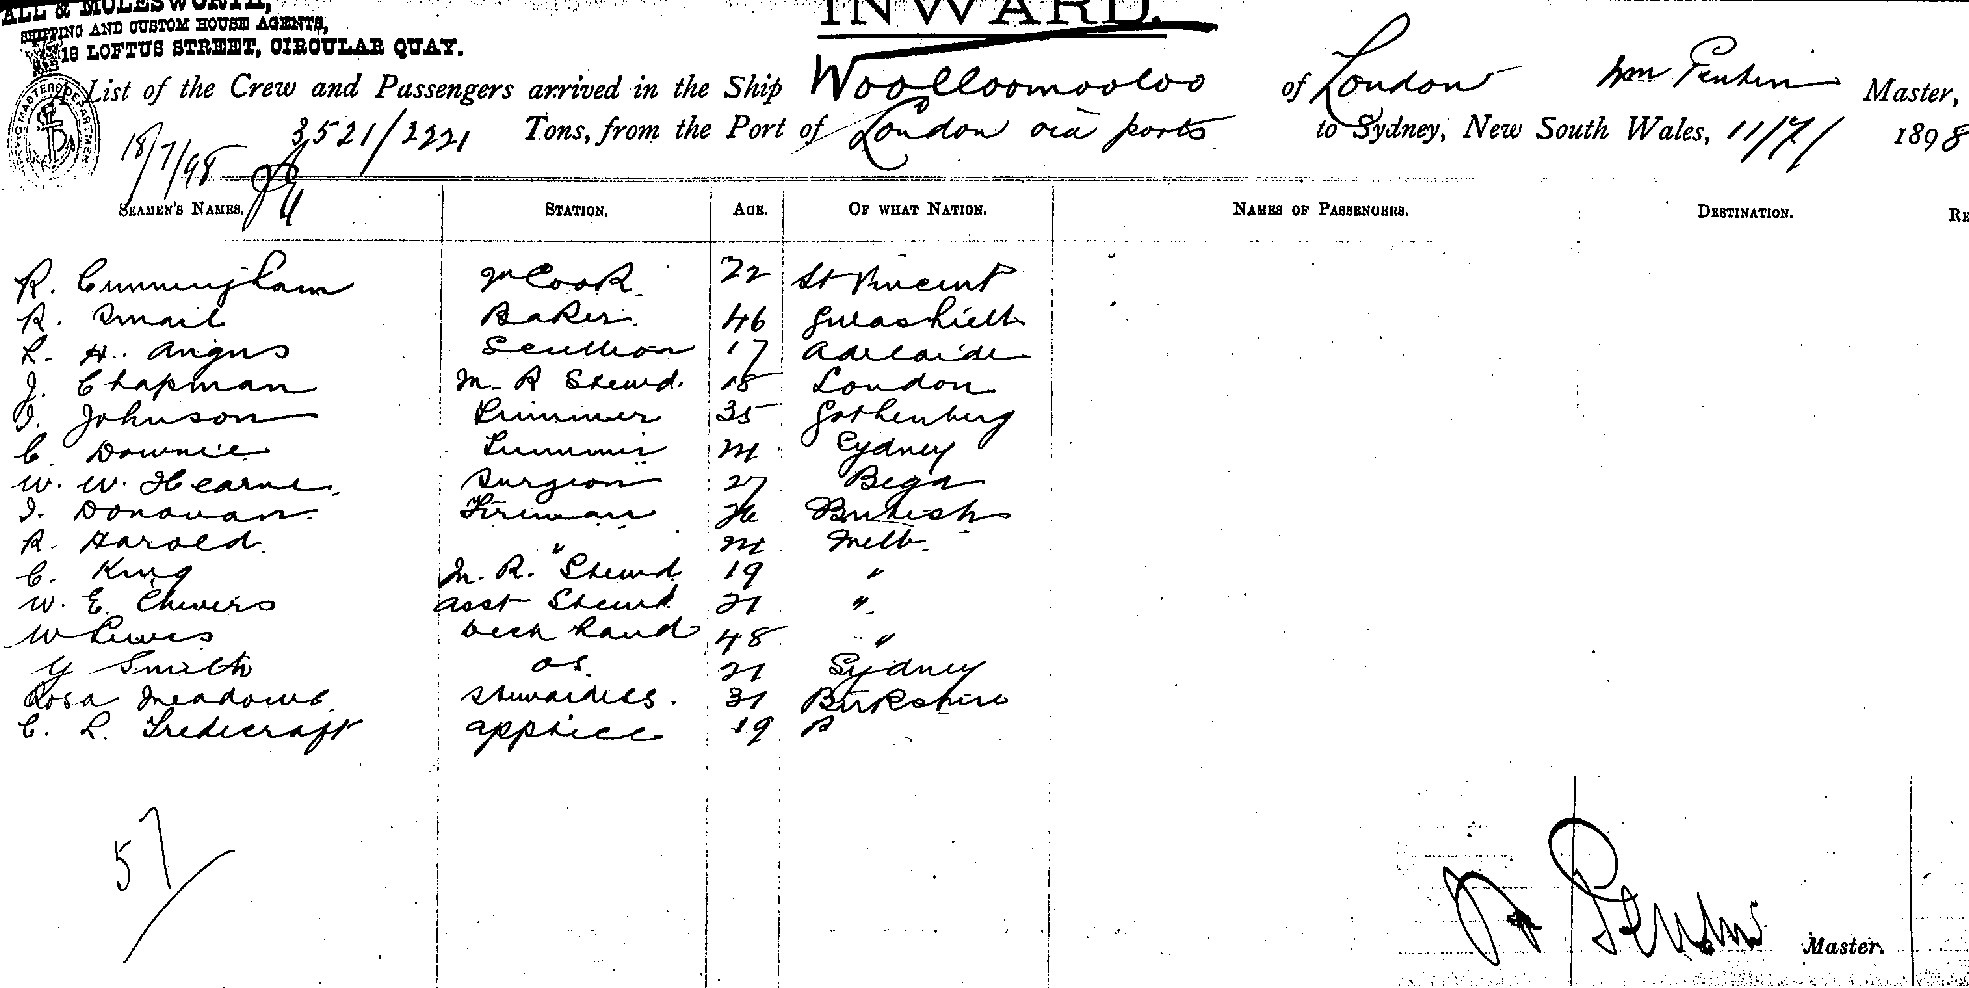 ALL & MOLESWORTH,
INWARD.
SHIPPING AND CUSTOM HOUSE AGENTS,
18 LOFTUS STREET, CIRCULAR QUAY.
List of the Crew and Passengers arrived in the Ship Woolloomooloo of London Wm Master,
18/7/98 3521/2221 Tons, from the Port of London via ports to Sydney, New South Wales, 11/7/ 1898
SEAMEN'S NAMES. STATION. AGE. OF WHAT NATION. NAMES OF PASSENGERS. DESTINATION. RE
R. Cunningham Cook 22 St Vincent
R. Smail Baker 46
L. H. Angus Scullion 17 Adelaide
J. Chapman M. R Stewd. 18 London
J. Johnson Trimmer 35 Gothenberg
C. Downie Trimmer 21 Sydney
W. W. Hearne Surgeon 27 Bega
J. Donovan Fireman British
R. Harold. " 21 Melb.
C. King M. R. Stewd 19 "
W. E. Chivers Asst Stewd 21 "
W Lewis Deck hand 48 "
Y Smith OS. 21 Sydney
Rosa Meadows. Stewardess. 31 Birkshire
C. L. apptice 19
57
Master.